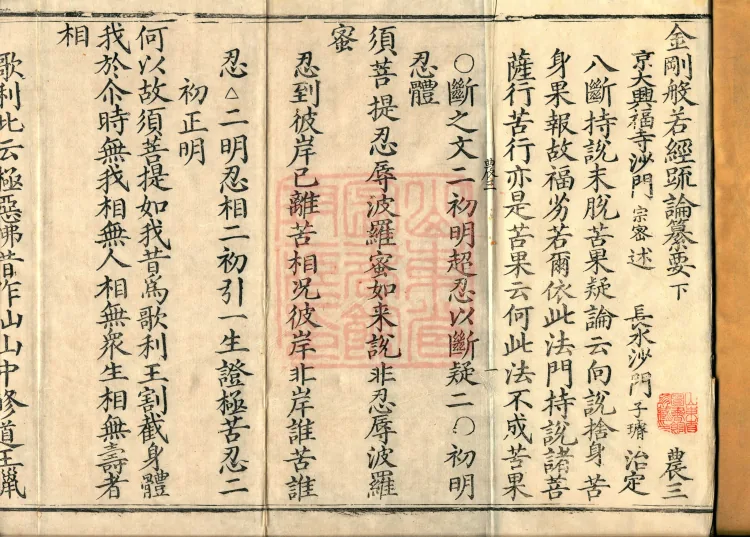 金剛般若經疏論纂要下
京大興福寺沙門宗密述 長水沙門子璿治定 農三
八斷持說未脫苦果疑論云向說捨身苦
身果報故福劣若爾依此法門持說諸菩
薩行苦行亦是苦果云何此法不成苦果
農三
○斷之文二初明超忍以斷疑二○初明
忍體
須菩提忍辱波羅蜜如来說非忍辱波羅
蜜
忍到彼岸已離苦相況彼岸非岸誰苦誰
忍△二明忍相二初引一生證極苦忍二
初正明
何以故須菩提如我昔為歌利王割截身體
我於尒時無我相無人相無衆生相無壽者
相
歌利此云極惡佛昔作山山中修道王獵